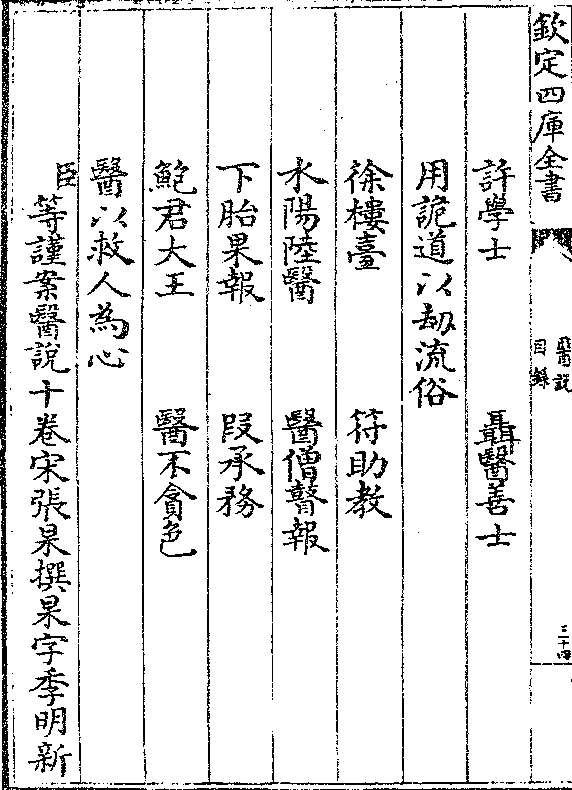 欽定四庫全書
醫說
目錄
三十四
許學士 聶醫善士
用詭道以劫流俗
徐樓臺 符助教
水陽陸醫 醫僧瞽報
下胎果報 段承務
鮑君大王 醫不貪色
醫以救人為心
臣等謹案醫說十卷宋張杲撰杲字季明新